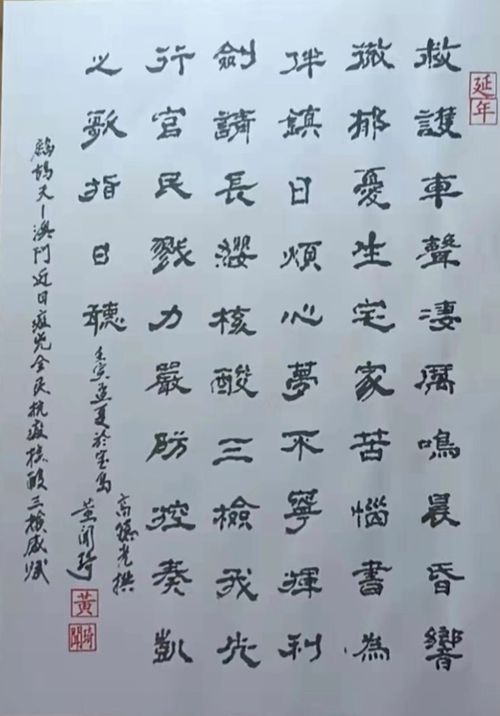 延年
救護車聲凄厲鳴晨昏響
徹郁憂生宅家苦惱書為
伴鎮日煩心夢不寧揮利
劍請長纓核酸三檢我先
行官民戮力嚴防控奏凱
之歌指日聽
高德光撰
壬寅孟夏於宝島
黄聞琦
黃
聞琦
鷓鴣天－澳門近日疫兇全民抗疫核酸三檢感賦